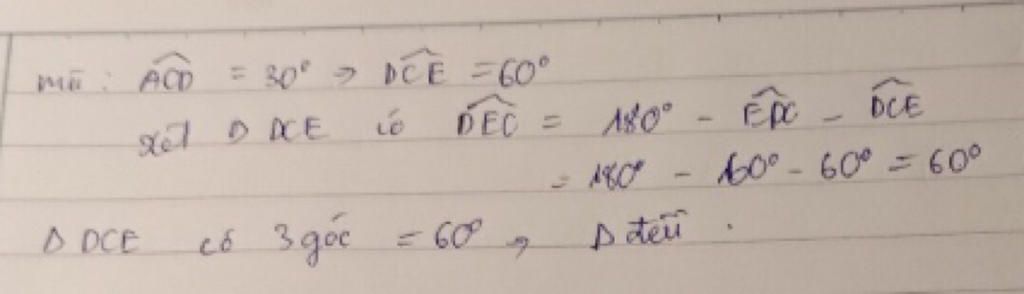 mà : ACD̂ = 30° → DCÊ = 60°
xét Δ DCE có DEĈ = 180° - EDĈ - DCÊ
= 180° - 60° - 60° = 60°
Δ DCE có 3 góc = 60° → Δ đều .